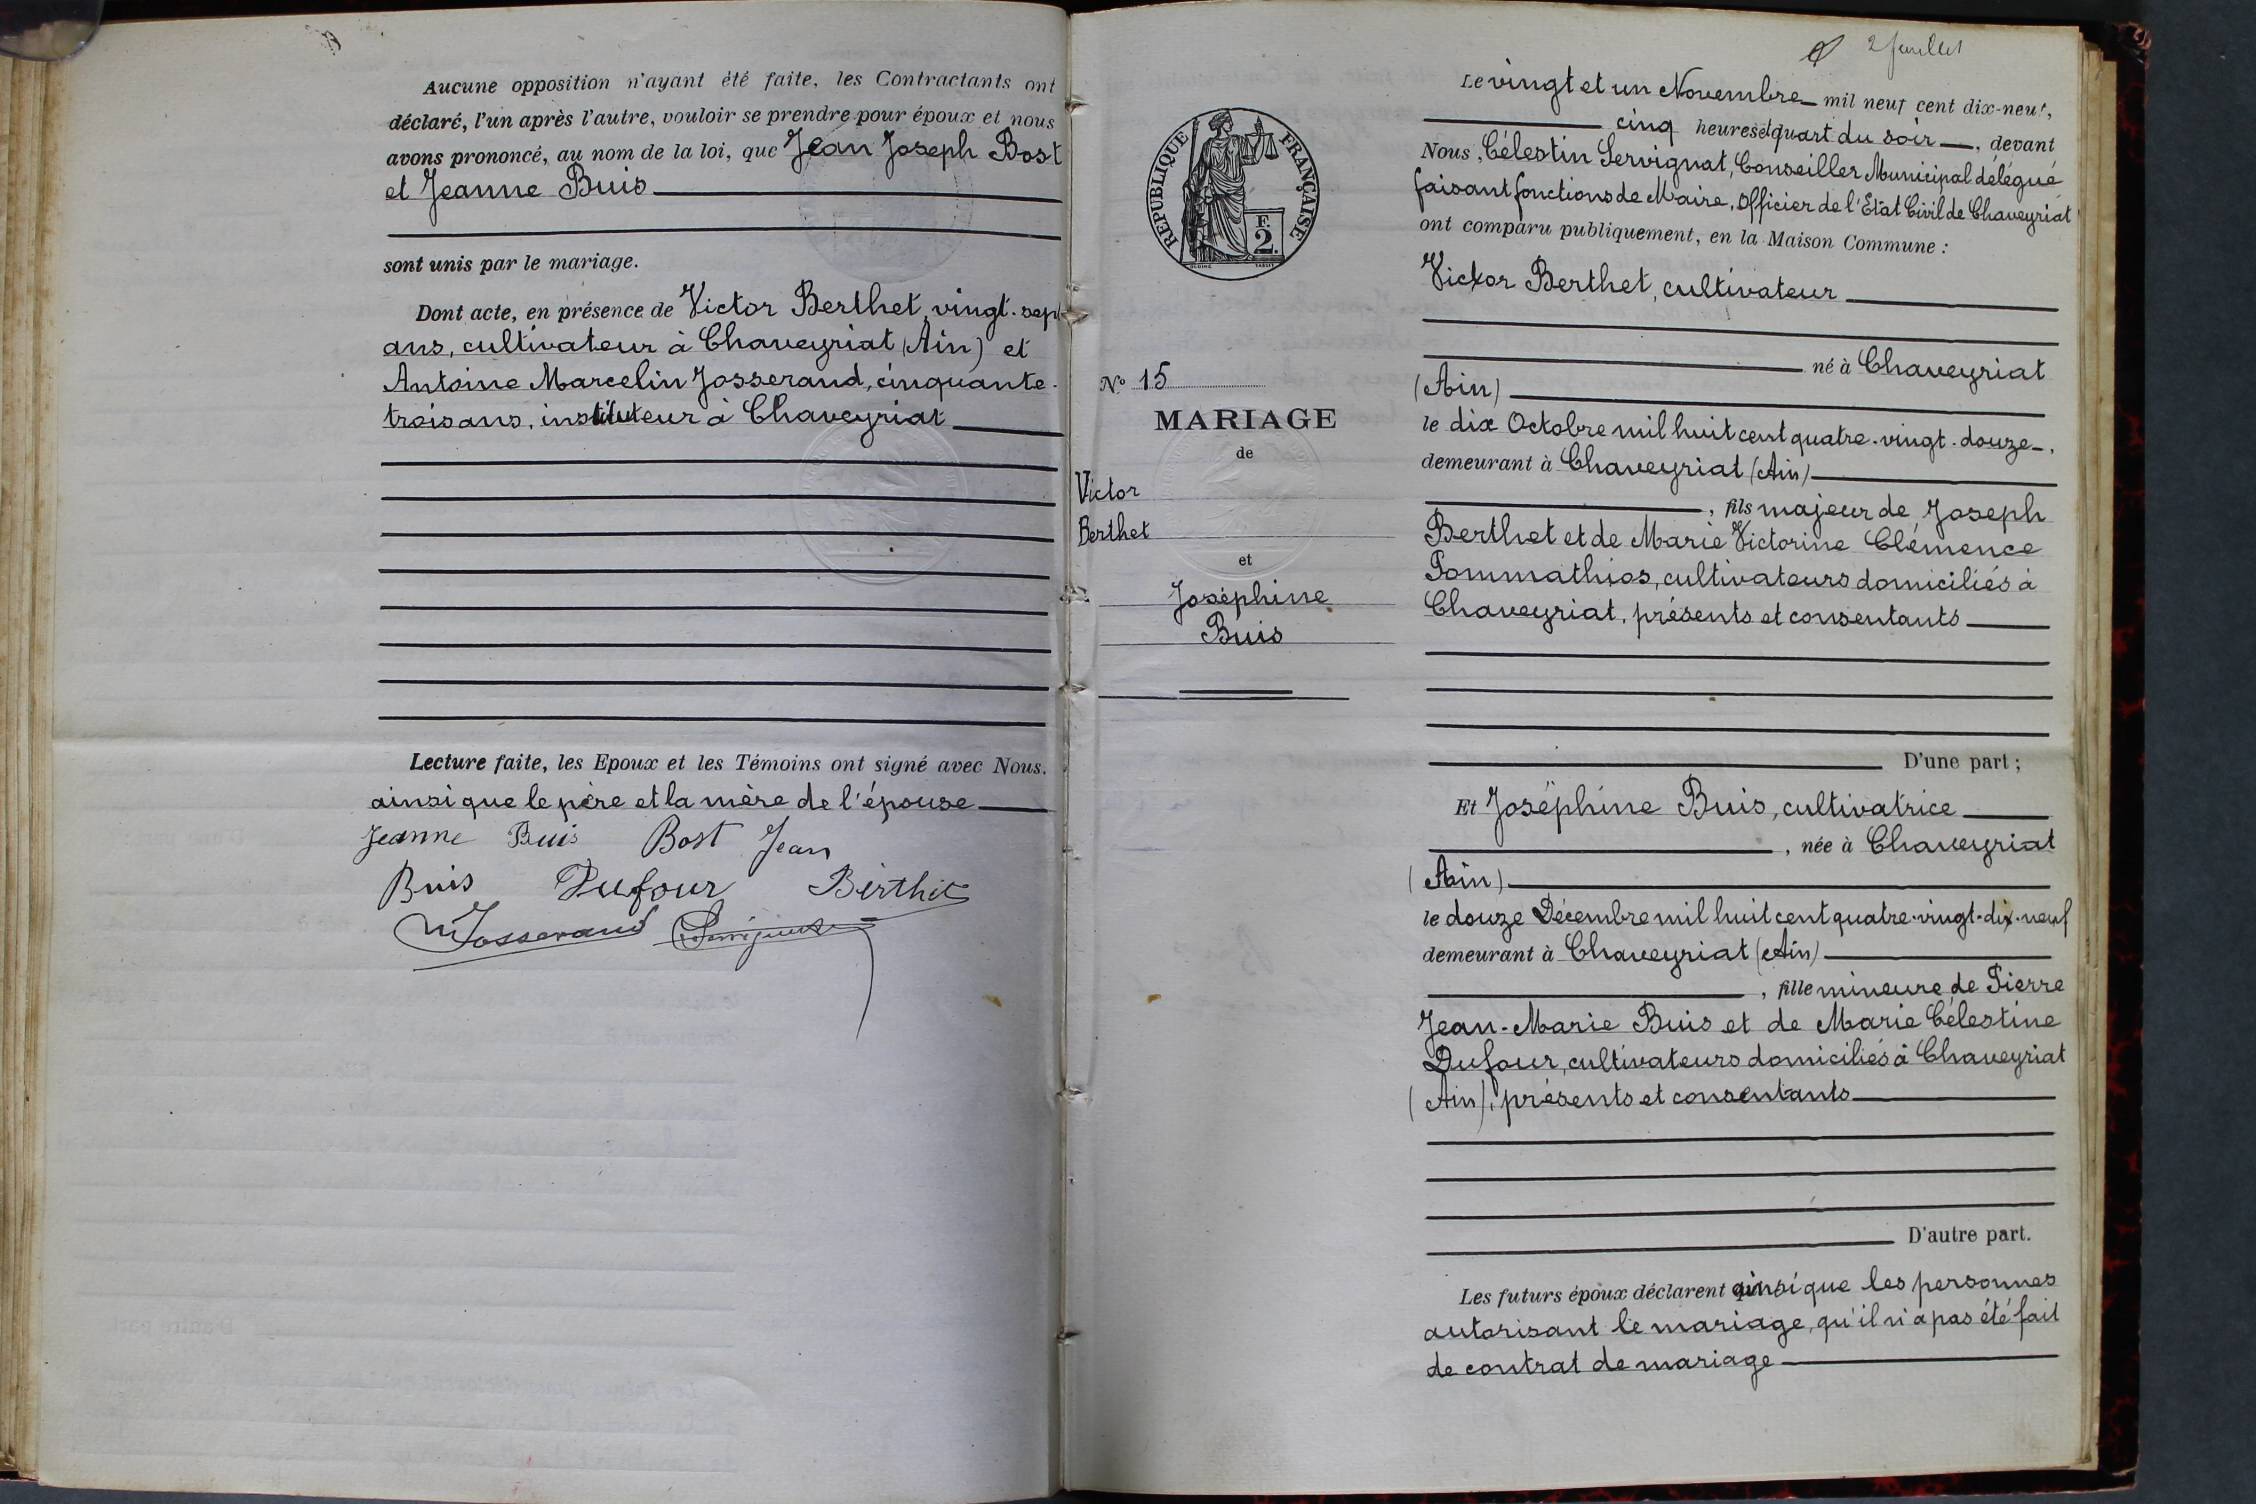 Aucune opposition n'ayant été faite, les Contractants ont
déclaré, l'un après l'autre, vouloir se prendre pour époux et nous
avons prononcé, au nom de la loi, que Jean Joseph Bost
et Jeanne Buis
sont unis par le mariage.
Dont acte, en présence de Victor Berthet, vingt-sept
ans, cultivateur à Chaveyriat (Ain) et
Antoine Marcelin Josserand, cinquante-
trois ans, instituteur à Chaveyriat
Lecture faite, les Epoux et les Témoins ont signé avec Nous.
ainsi que le père et la mère de l'épouse
Jeanne Buis Bost Jean
Buis Dufour Berthet
Josserand Servignat
2 feuillet
REPUBLIQUE FRANÇAISE
F.
2.
No 15
MARIAGE
de
Victor
Berthet
et
Joséphine
Buis
Le vingt et un Novembre mil neuf cent dix-neuf,
cinq heures et quart du soir, devant
Nous, Célestin Servignat, Conseiller Municipal délégué
faisant fonctions de Maire, Officier de l'Etat Civil de Chaveyriat
ont comparu publiquement, en la Maison Commune :
Victor Berthet, cultivateur
né à Chaveyriat
(Ain)
le dix Octobre mil huit cent quatre-vingt-douze,
demeurant à Chaveyriat (Ain)
, fils majeur de Joseph
Berthet et de Marie Victorine Clémence
Pommathios, cultivateurs domiciliés à
Chaveyriat, présents et consentants
D'une part ;
Et Joséphine Buis, cultivatrice
, née à Chaveyriat
(Ain)
le douze Décembre mil huit cent quatre-vingt-dix-neuf
demeurant à Chaveyriat (Ain)
, fille mineure de Pierre
Jean-Marie Buis et de Marie Célestine
Dufour, cultivateurs domiciliés à Chaveyriat
(Ain), présents et consentants
D'autre part.
Les futurs époux déclarent ainsi que les personnes
autorisant le mariage, qu'il n'a pas été fait
de contrat de mariage